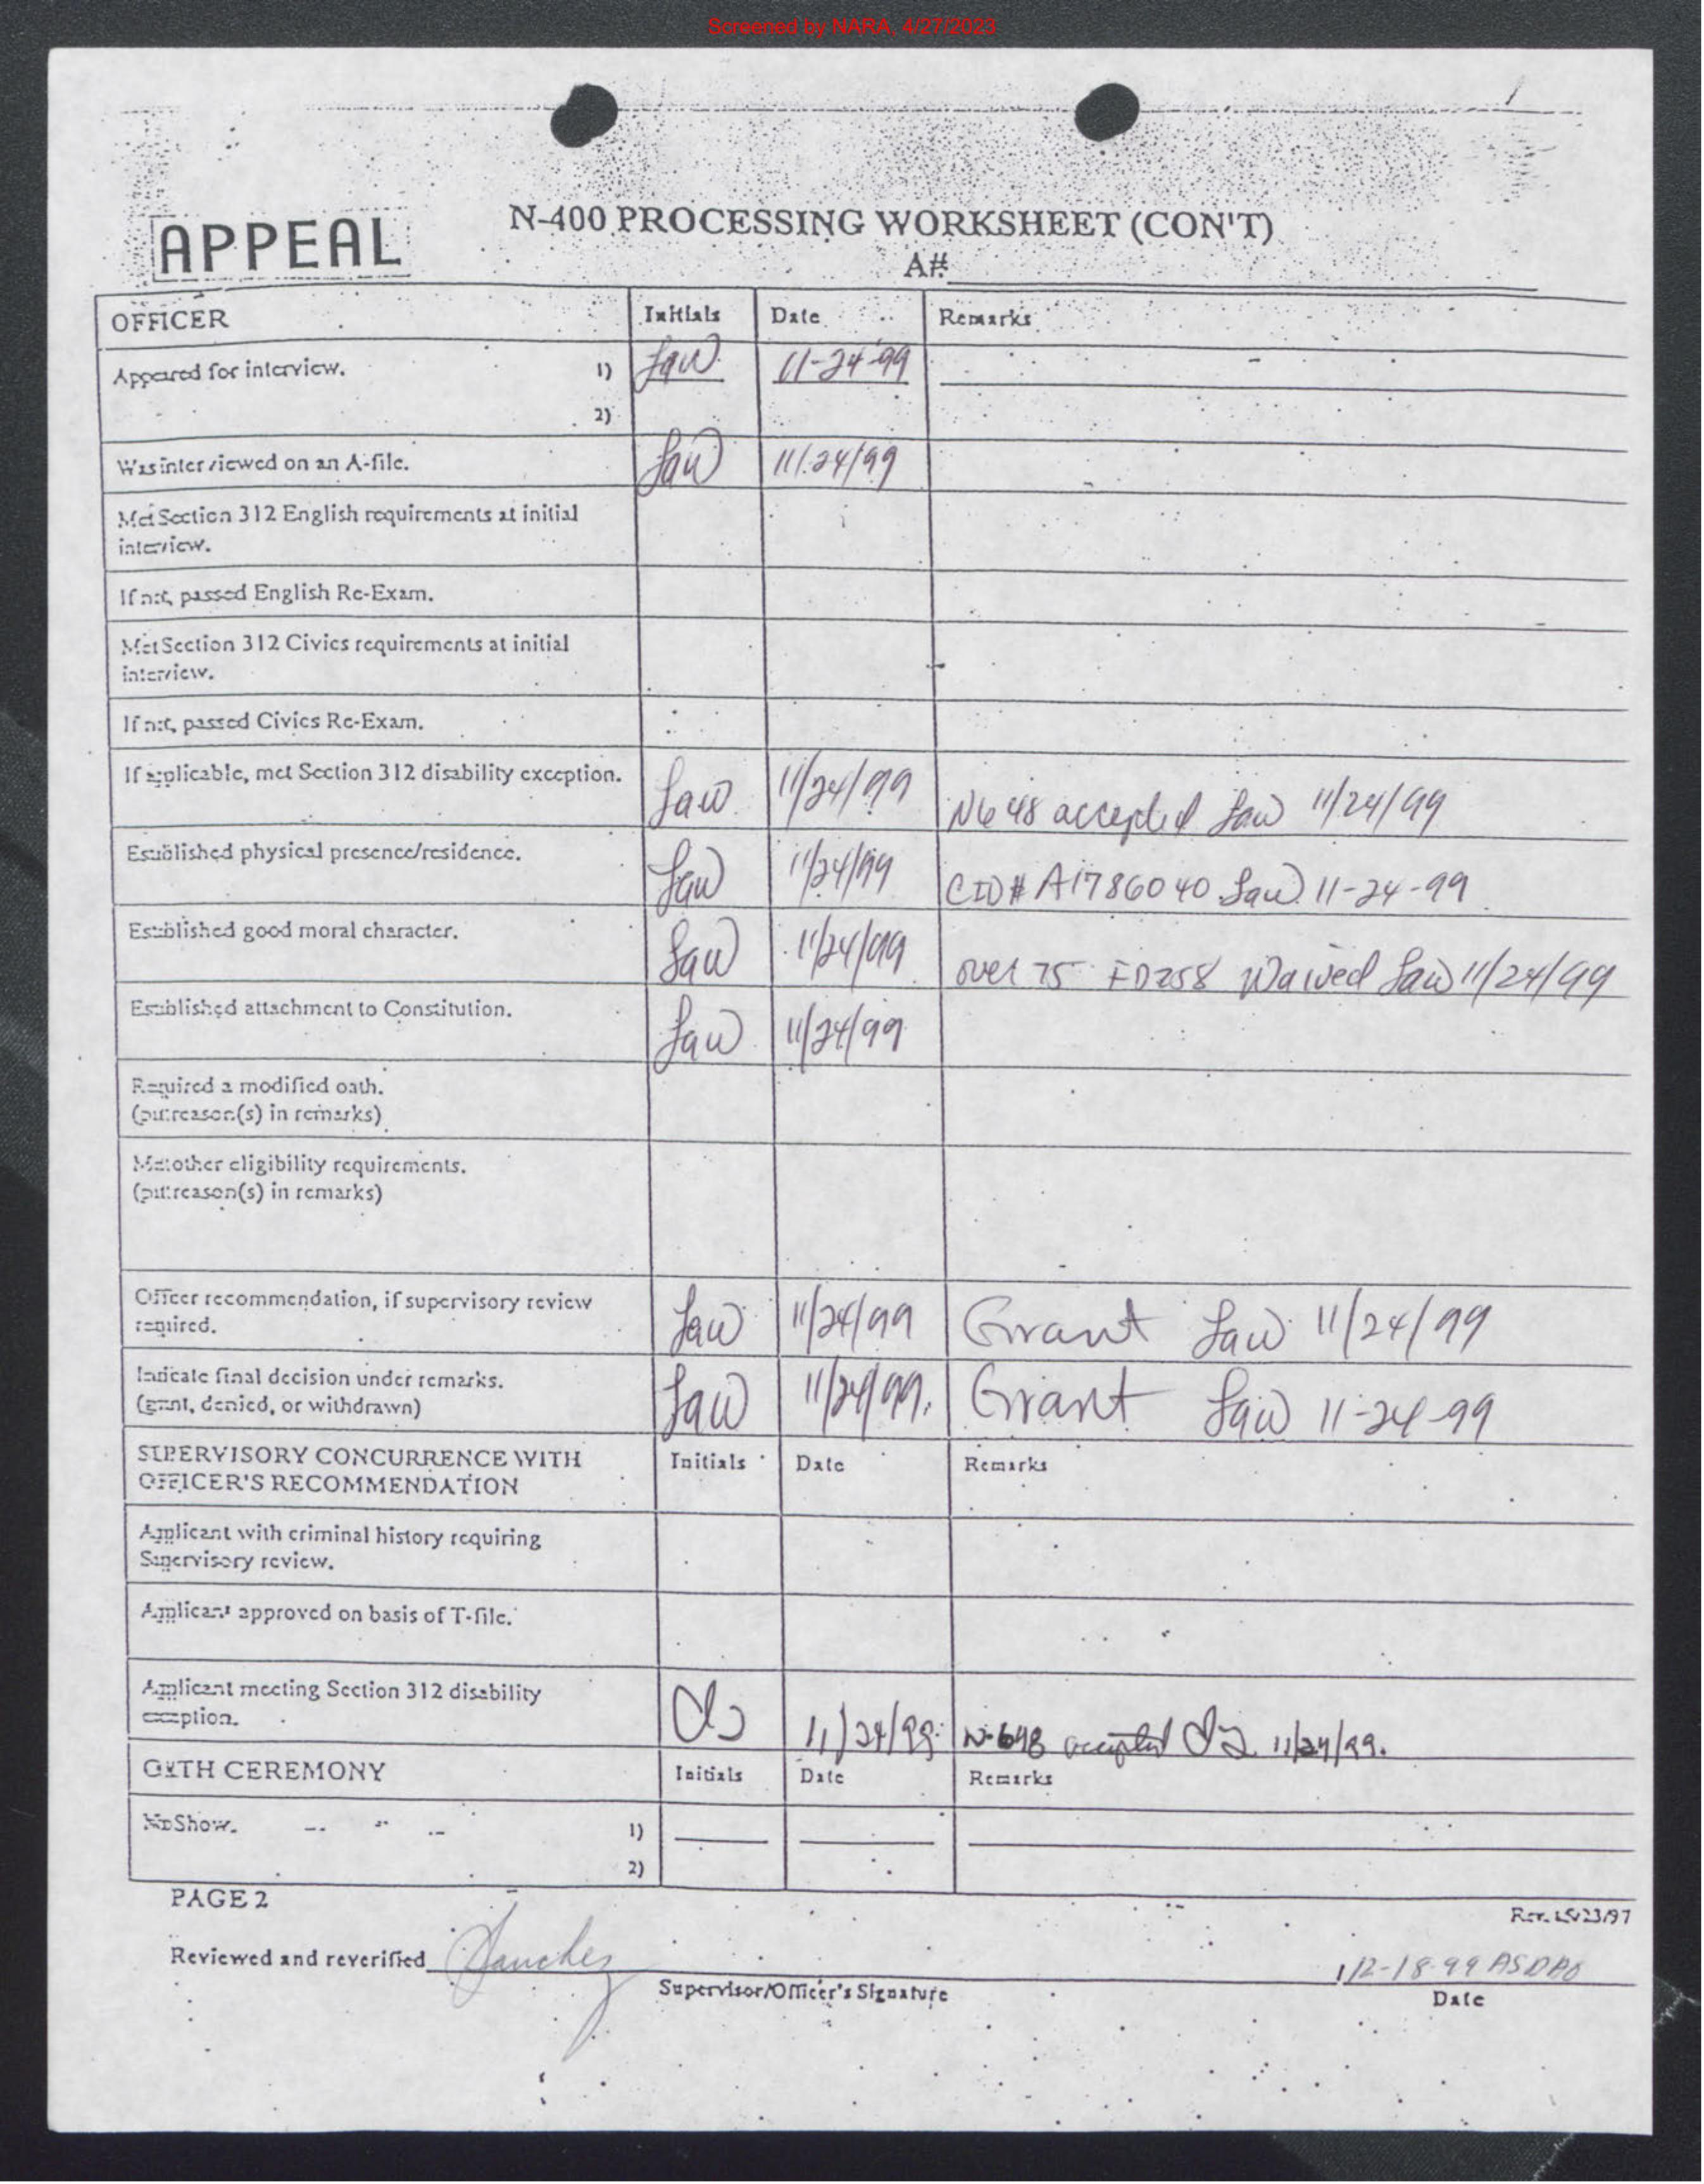 Screened by NARA, 4/27/2023
APPEAL
N-400 PROCESSING WORKSHEET (CON'T)
A#
OFFICER Initials Date Remarks
Appeared for interview. 1) 11-24-99
2)
Was interviewed on an A-file. 11/24/99
Met Section 312 English requirements at initial
interview.
If not, passed English Re-Exam.
Met Section 312 Civics requirements at initial
interview.
If not, passed Civics Re-Exam.
If applicable, met Section 312 disability exception. Law 11/24/99 N648 accepted Law 11/24/99
Established physical presence/residence. Law 11/24/99 CID# A1786040 Law 11-24-99
Established good moral character. Law 11/24/99 over 75 FD258 Waived Law 11/24/99
Established attachment to Constitution. Law 11/24/99
Required a modified oath.
(put reason(s) in remarks)
Met other eligibility requirements.
(put reason(s) in remarks)
Officer recommendation, if supervisory review
required. Law 11/24/99 Grant Law 11/24/99
Indicate final decision under remarks.
(grant, denied, or withdrawn) Law 11/24/99. Grant Law 11-24-99
SUPERVISORY CONCURRENCE WITH Initials Date Remarks
OFFICER'S RECOMMENDATION
Applicant with criminal history requiring
Supervisory review.
Applicant approved on basis of T-file.
Applicant meeting Section 312 disability
exception. 11/24/99 N-648 accepted 11/24/99.
OATH CEREMONY Initials Date Remarks
No Show. 1)
2)
PAGE 2
Reviewed and reverified Sanchez 12-18-99 ASDAO
Supervisor/Officer's Signature Date